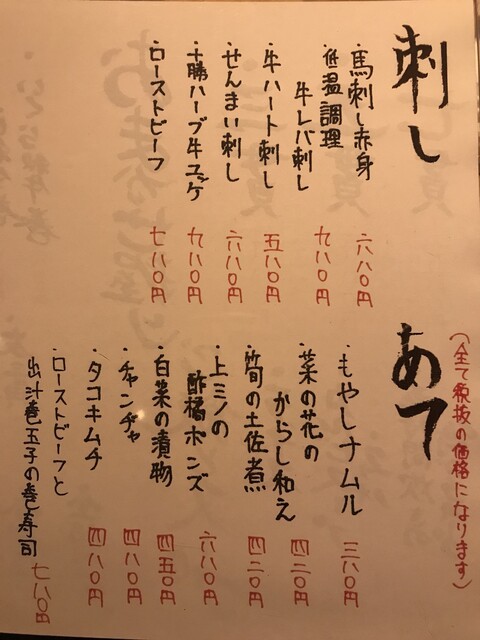 刺し
・馬刺し赤身 六八〇円
・低温調理
牛レバ刺し 九八〇円
・牛ハート刺し 五八〇円
・せんまい刺し 六八〇円
・十勝ハーブ牛ユッケ 九八〇円
・ローストビーフ 七八〇円
あて
(全て税抜の価格になります)
・もやしナムル 三八〇円
・菜の花の
からし和え 四二〇円
・筍の土佐煮 四二〇円
・上ミノの
酢橘ポンズ 六八〇円
・白菜の漬物 四五〇円
・チャンヂャ 四八〇円
・タコキムチ 四八〇円
・ローストビーフと
出汁巻玉子の巻寿司 七八〇円